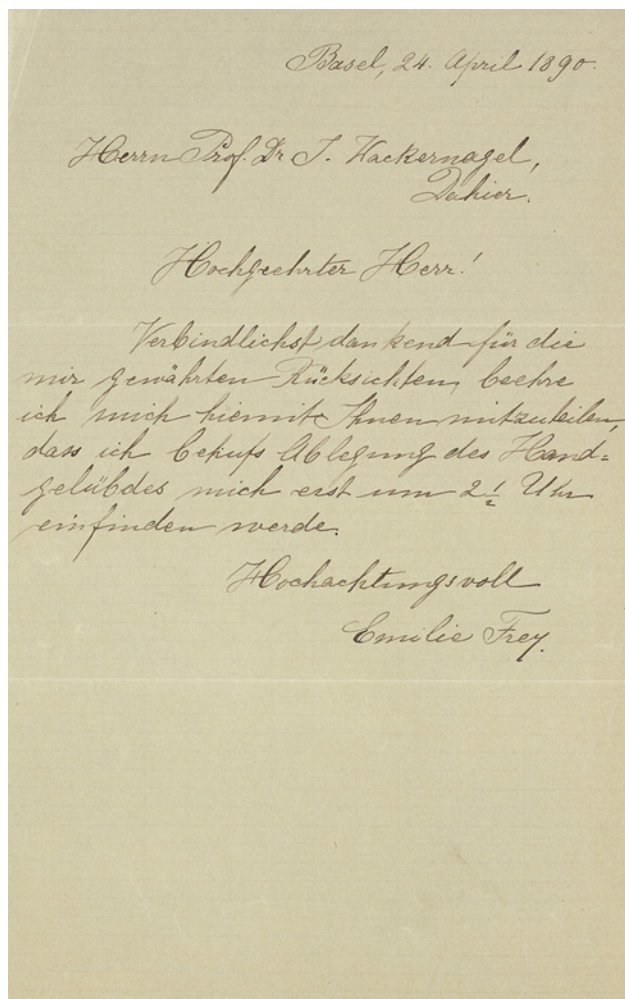 Basel, 24. April 1890.
Herrn Prof. Dr J. Wackernagel,
Dahier.
Hochgeehrter Herr!
Verbindlichst dankend für die
mir gewährten Rücksichten, beehre
ich mich hiemit Ihnen mitzuteilen,
dass ich behufs Ablegung des Hand=
gelübdes mich erst um 2 1/2 Uhr
einfinden werde.
Hochachtungsvoll
Emilie Frey.